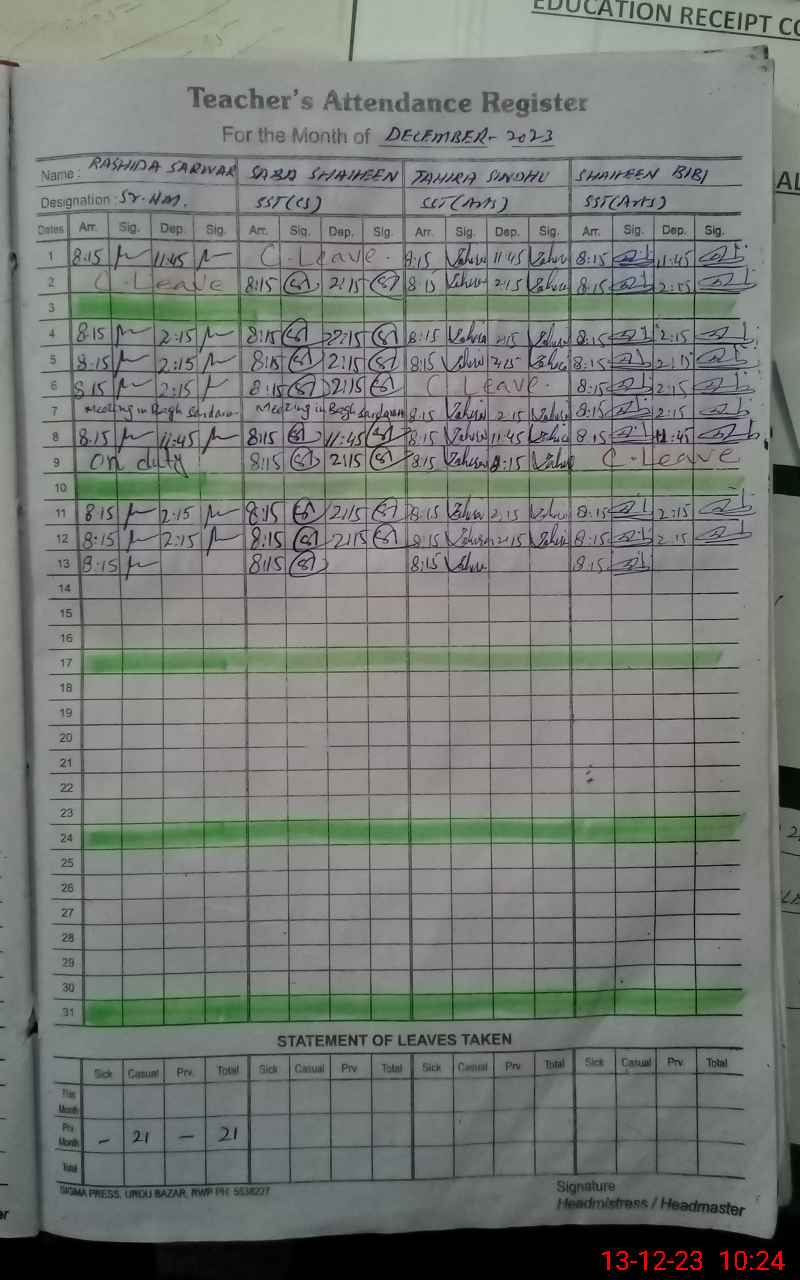 EDUCATION RECEIPT CO
AL
Teacher's Attendance Register
For the Month of DECEMBER - 2023
Name: RASHIDA SARWAR SABA SHAHEEN TAHIRA SINDHU SHAHEEN BIBI
Designation: Sr. HM. SST(CS) SST(Arts) SST(Arts)
Dates Arr. Sig. Dep. Sig. Arr. Sig. Dep. Sig. Arr. Sig. Dep. Sig. Arr. Sig. Dep. Sig.
1 8:15 11:45 C-Leave. 8:15 11:45 8:15 11:45
2 C-Leave 8:15 2:15 8:15 2:15 8:15 2:15
3
4 8:15 2:15 8:15 2:15 8:15 2:15 8:15 2:15
5 8:15 2:15 8:15 2:15 8:15 2:15 8:15 2:15
6 8:15 2:15 8:15 2:15 C Leave. 8:15 2:15
7 Meeting in Bagh Sardaran Meeting in Bagh Sardaran 8:15 2:15 8:15 2:15
8 8:15 11:45 8:15 11:45 8:15 11:45 8:15 11:45
9 On duty 8:15 2:15 8:15 2:15 C-Leave
10
11 8:15 2:15 8:15 2:15 8:15 2:15 8:15 2:15
12 8:15 2:15 8:15 2:15 8:15 2:15 8:15 2:15
13 8:15 8:15 8:15 8:15
14
15
16
17
18
19
20
21
22
23
24
25
26
27
28
29
30
31
STATEMENT OF LEAVES TAKEN
Sick Casual Prv. Total Sick Casual Prv. Total Sick Casual Prv. Total Sick Casual Prv. Total
This Month
Prv. Month - 21 - 21
Total
SIGMA PRESS, URDU BAZAR, RWP PH: 5538227
Signature
Headmistress / Headmaster
13-12-23 10:24